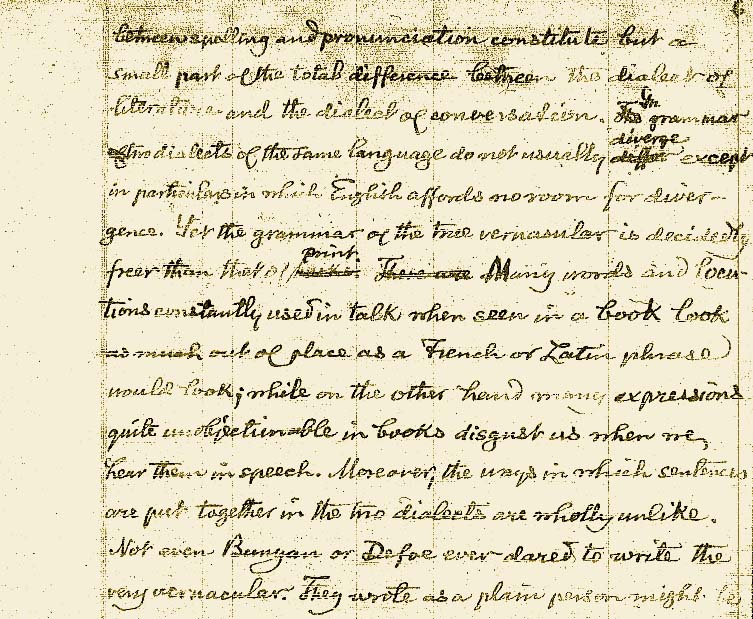 between spelling and pronunciation constitute but a
small part of the total difference between the dialect of
literature and the dialect of conversation. In
The grammar
diverge
two dialects of the same language do not usually differ except
in particulars in which English affords no room for diver-
gence. Yet the grammar of the true vernacular is decidedly
print.
freer than that of books. There are Many words and locu-
tions constantly used in talk when seen in a book look
as much out of place as a French or Latin phrase
would look; while on the other hand many expressions
quite unobjectionable in books disgust us when we
hear them in speech. Moreover, the ways in which sentences
are put together in the two dialects are wholly unlike.
Not even Bunyan or Defoe ever dared to write the
very vernacular. They wrote as a plain person might